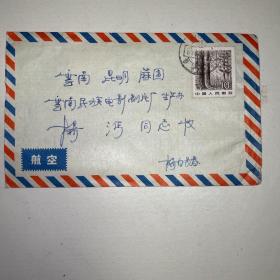 中国人民邮政
云南 昆明 麻园
云南民族电影制片厂生产办
杨 同志收
航空